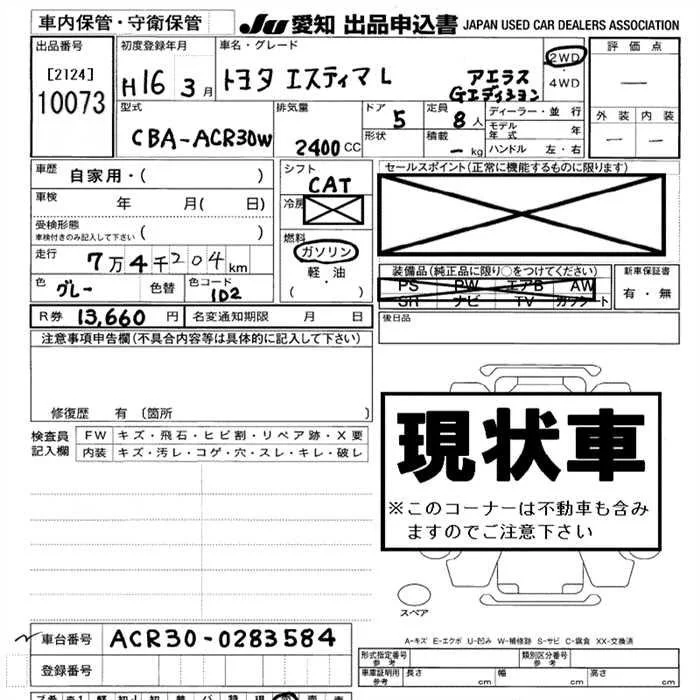 車内保管・守衛保管
JU 愛知 出品申込書 JAPAN USED CAR DEALERS ASSOCIATION
出品番号
[2124]
10073
初度登録年月
H16 3月
車名・グレード
トヨタ エスティマ L アエラス Gエディション
2WD
・
4WD
評価点
—
外装 内装
— —
型式
CBA-ACR30W
排気量
2400 CC
ドア
5
形状
定員
8人
積載
— kg
ディーラー・並行
モデル年式 年
ハンドル 左・右
車歴
自家用・( )
車検
年 月( 日)
受検形態
車検付きのみ記入して下さい ( )
走行
7万4千204km
色
グレー
色替
色コード
1D2
シフト
CAT
冷房
燃料
ガソリン
・
軽・油
( )
セールスポイント(正常に機能するものに限ります)
装備品(純正品に限り○をつけてください)
PS PW エアB AW
SR ナビ TV カワシート
新車保証書
有・無
R券 13,660 円
名変通知期限 月 日
後日品
注意事項申告欄(不具合内容等は具体的に記入して下さい)
修復歴 有 〔箇所 〕
検査員記入欄
FW キズ・飛石・ヒビ割・リペア跡・X要
内装 キズ・汚レ・コゲ・穴・スレ・キレ・破レ
現状車
※このコーナーは不動車も含み
ますのでご注意下さい
スペア
A-キズ E-エクボ U-凹み W-補修跡 S-サビ C-腐食 XX-交換済
車台番号 ACR30-0283584
登録番号
形式指定番号
参考
類別区分番号
参考
車庫証明用
参考
長さ cm 幅 cm 高さ cm